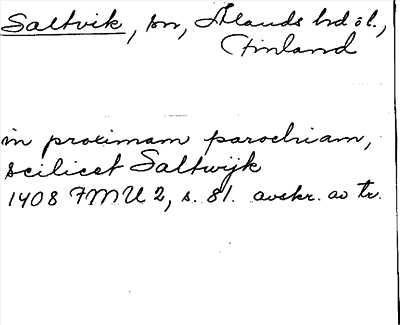 Saltvik, sn, Ålands hd o l.,
Finland
in proximam parochiam,
scilicet Saltwijk
1408 FMU 2, s. 81. avskr. av tr.